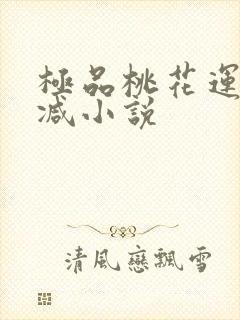 極品桃花運
减小說
清風戀飄雪